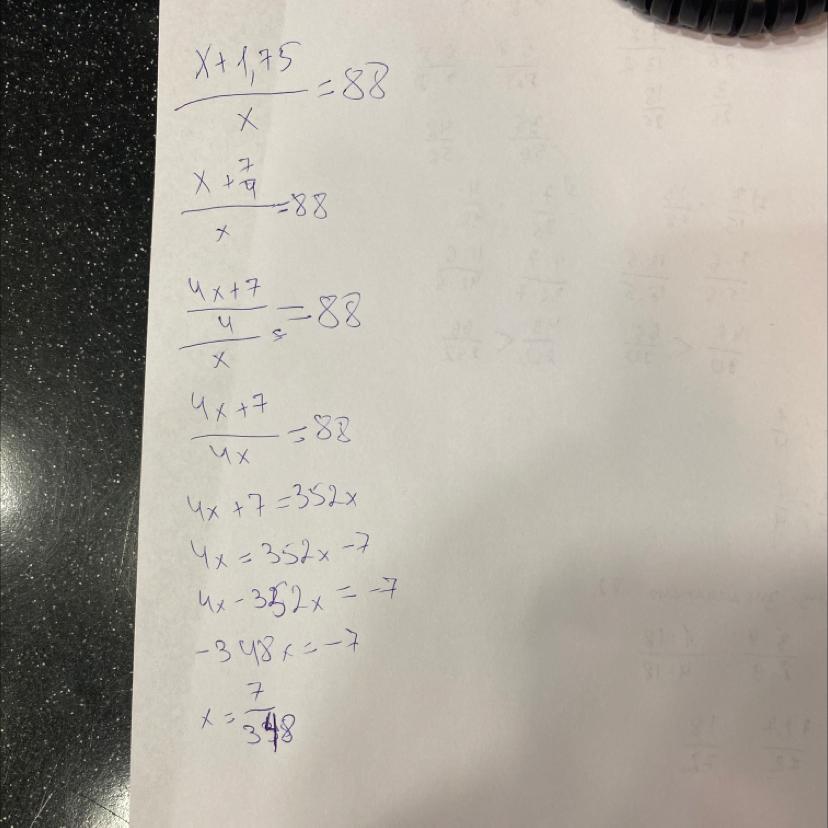 x+1,75
——— =88
x
x+7/4
——— =88
x
4x+7
4
——— =88
x
4x+7
——— =88
4x
4x+7=352x
4x=352x-7
4x-352x=-7
-348x=-7
x=7/348